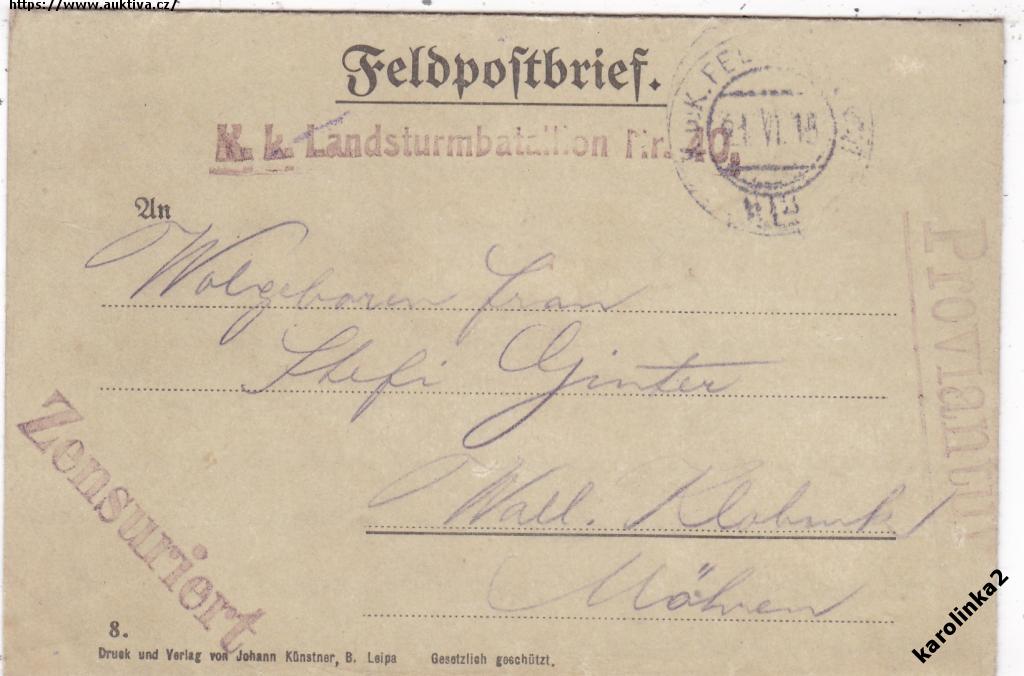 https://www.auktiva.cz/
Feldpostbrief.
K. k. Landsturmbataillon Nr. 40.
K.u.K. FEL
21. VI. 18
An
Wolgeboren Frau
Stefi Ginter
Wall. Klobouk
Mähren
Zensuriert
8.
Druck und Verlag von Johann Künstner, B. Leipa Gesetzlich geschützt.
karolinka2